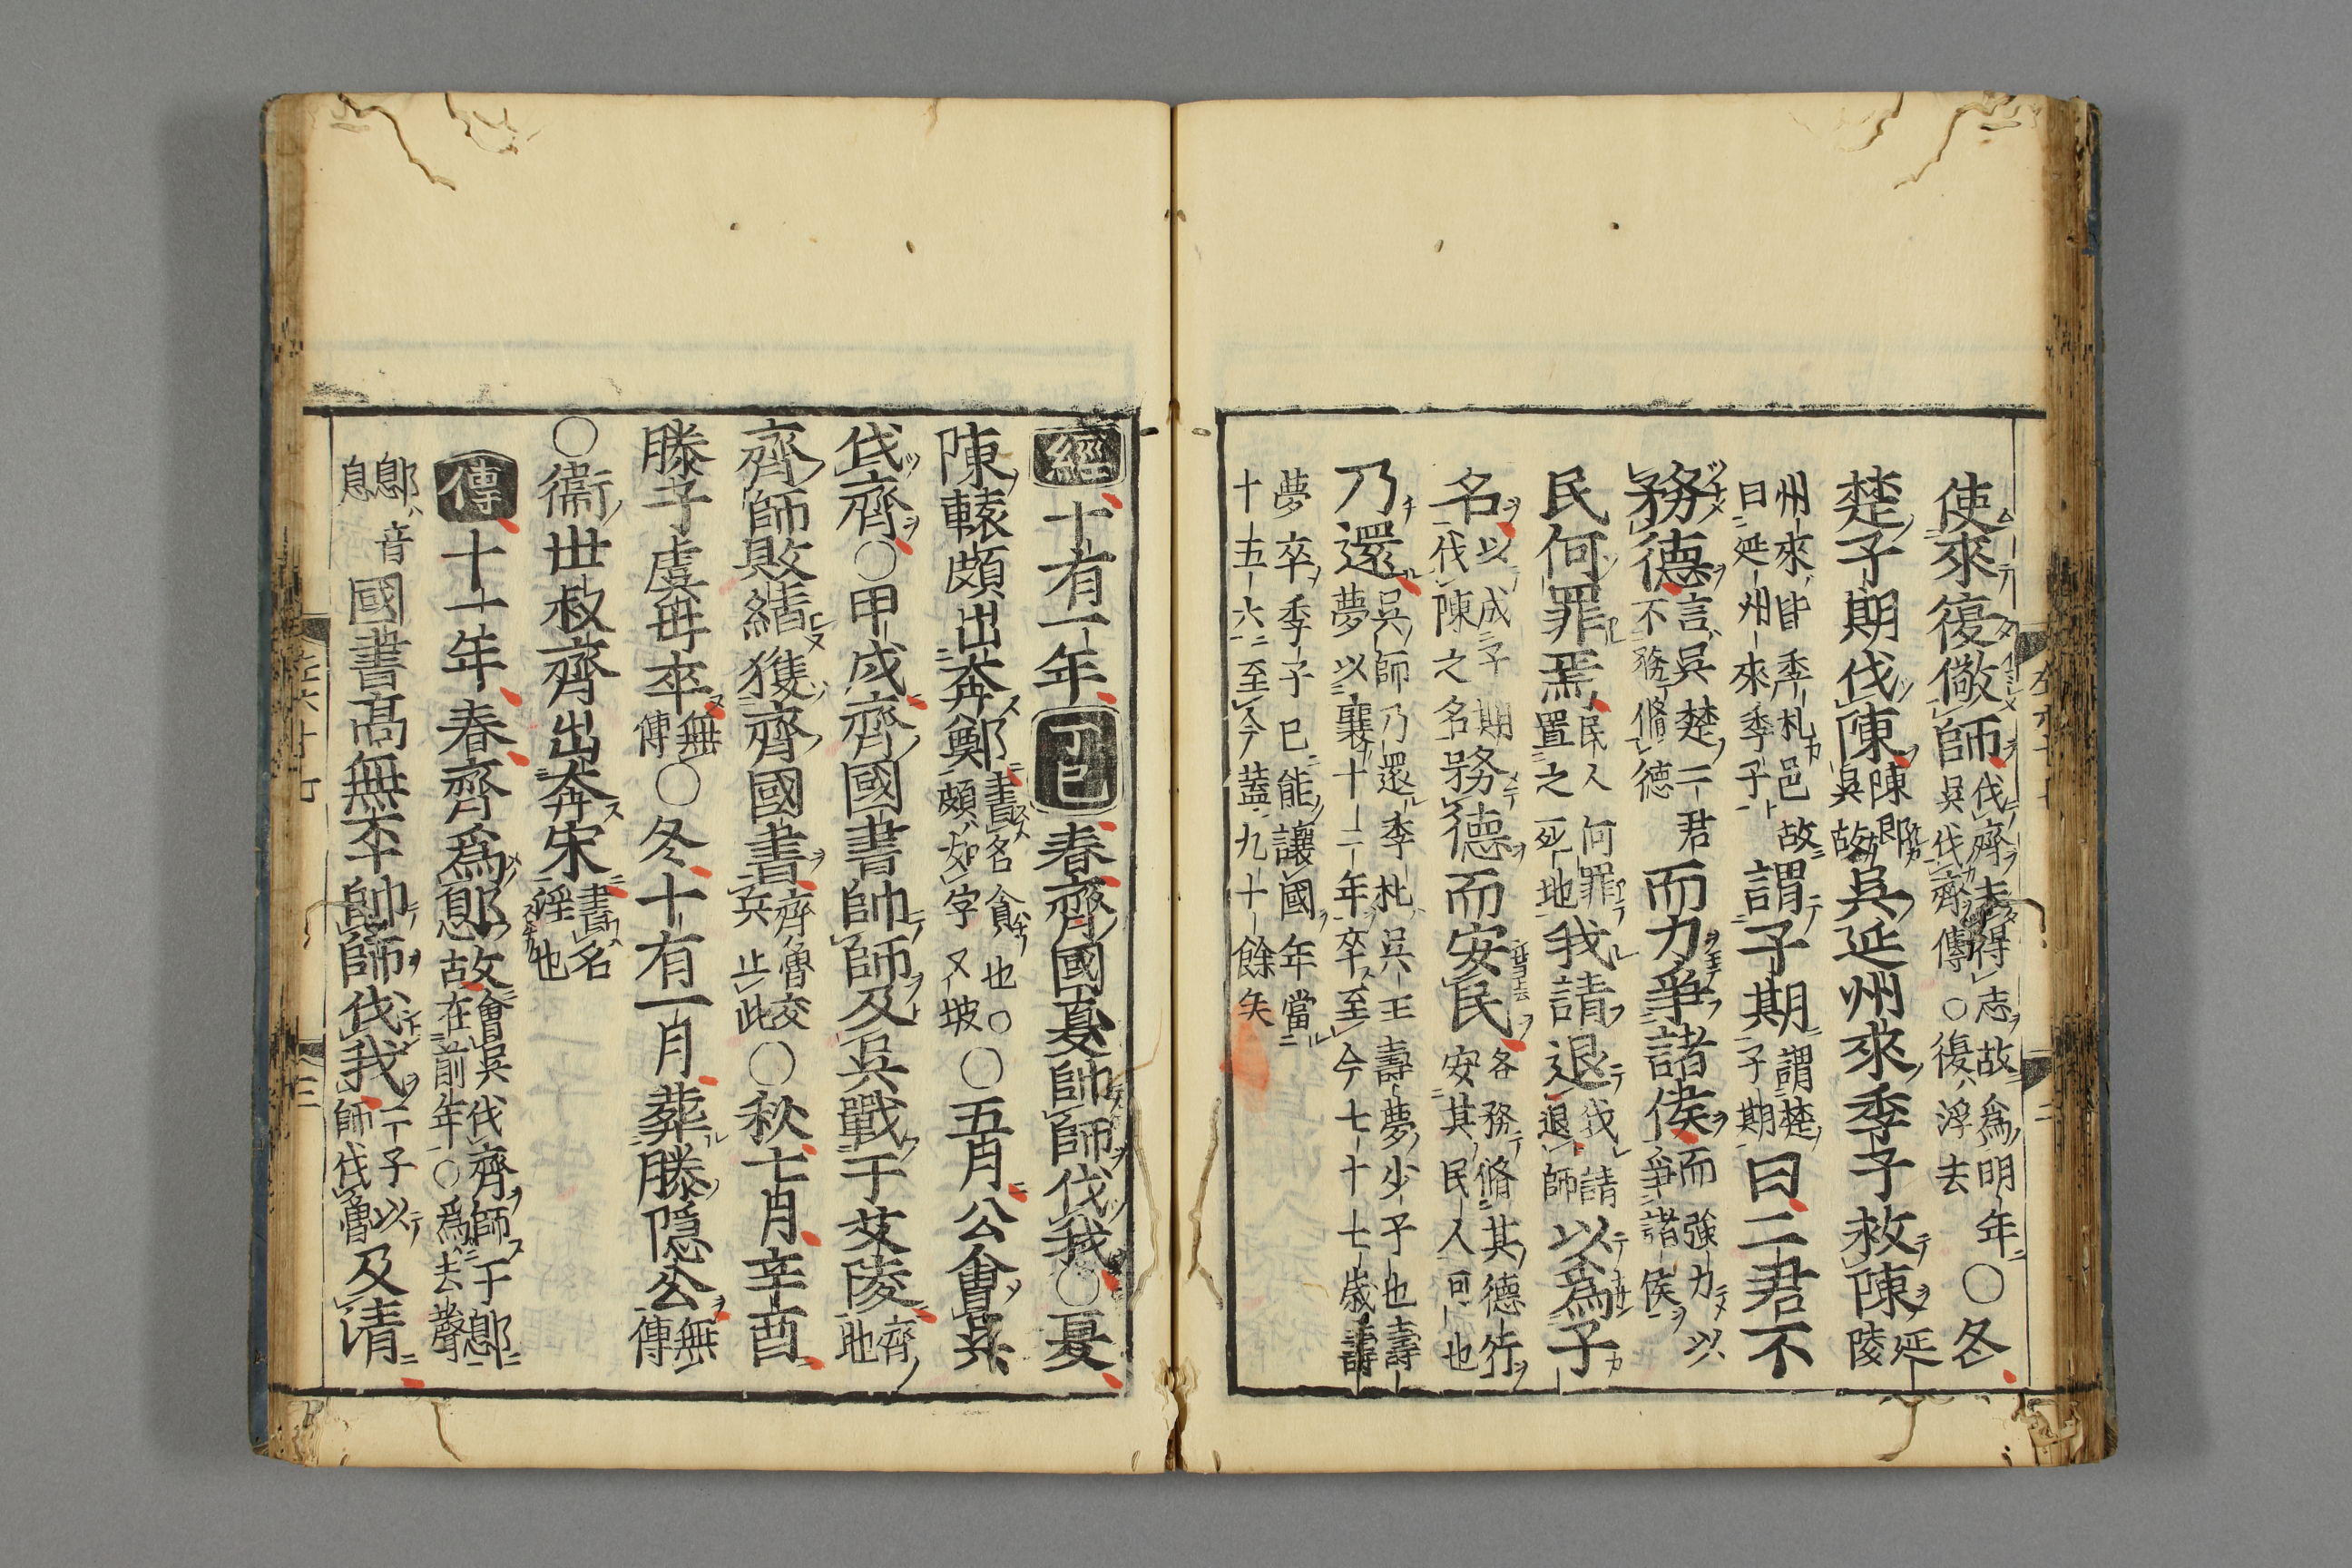 使來復儆師伐齊未得志故爲明年吳伐齊傳○復浮去○冬
楚子期伐陳陳即吳故吳延州來季子救陳延陵
州來皆季札邑故曰延州來季子謂子期謂楚子期曰二君不
務德言吳楚二君不務脩德而力爭諸侯而強力以爭諸侯
民何罪焉民人何罪置之死地我請退我請退師以爲子
名以成子期伐陳之名務德而安民各務脩其德行安其民人可也
乃還吳師乃還季札吳王壽夢少子也壽夢以襄十二年卒至今七十七歲壽
夢卒季子已能讓國年當十五六至今蓋九十餘矣
經十有一年丁巳春齊國夏帥師伐我○夏
陳轅頗出奔鄭書名貪也○頗如字又坡○五月公會吳
伐齊○甲戌齊國書帥師及吳戰于艾陵齊地
齊師敗績獲齊國書齊魯交兵止此○秋七月辛酉
滕子虞毋卒無傳○冬十有一月葬滕隱公無傳
○衞世叔齊出奔宋書名淫也
傳十一年春齊爲鄎故會吳伐齊師于鄎在前年○爲去聲
鄎音息國書高無㔻帥師伐我二子以師伐魯及清